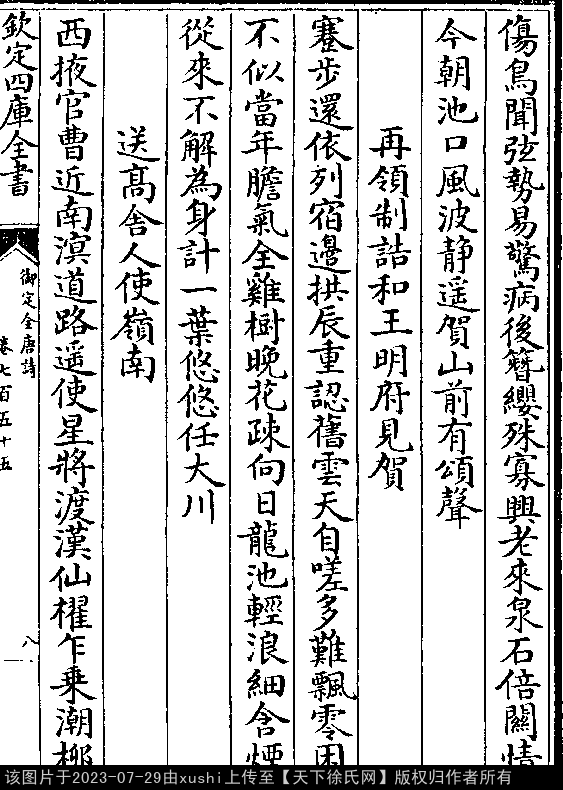 傷鳥聞弦勢易驚病後簪纓殊寡興老來泉石倍闗情
今朝池口風波静遥賀山前有頌聲
再領制誥和王明府見賀
蹇步還依列宿邊拱辰重認舊雲天自嗟多難飄零困
不似當年膽氣全雞樹晚花疎向日龍池輕浪細含煙
從來不解為身計一葉悠悠任大川
送髙舍人使嶺南
西掖官曹近南溟道路遥使星將渡漢仙櫂乍乗潮椰
欽定四庫全書
御定全唐詩
卷七百五十五
八
该图片于2023-07-29由xushi上传至【天下徐氏网】版权归作者所有